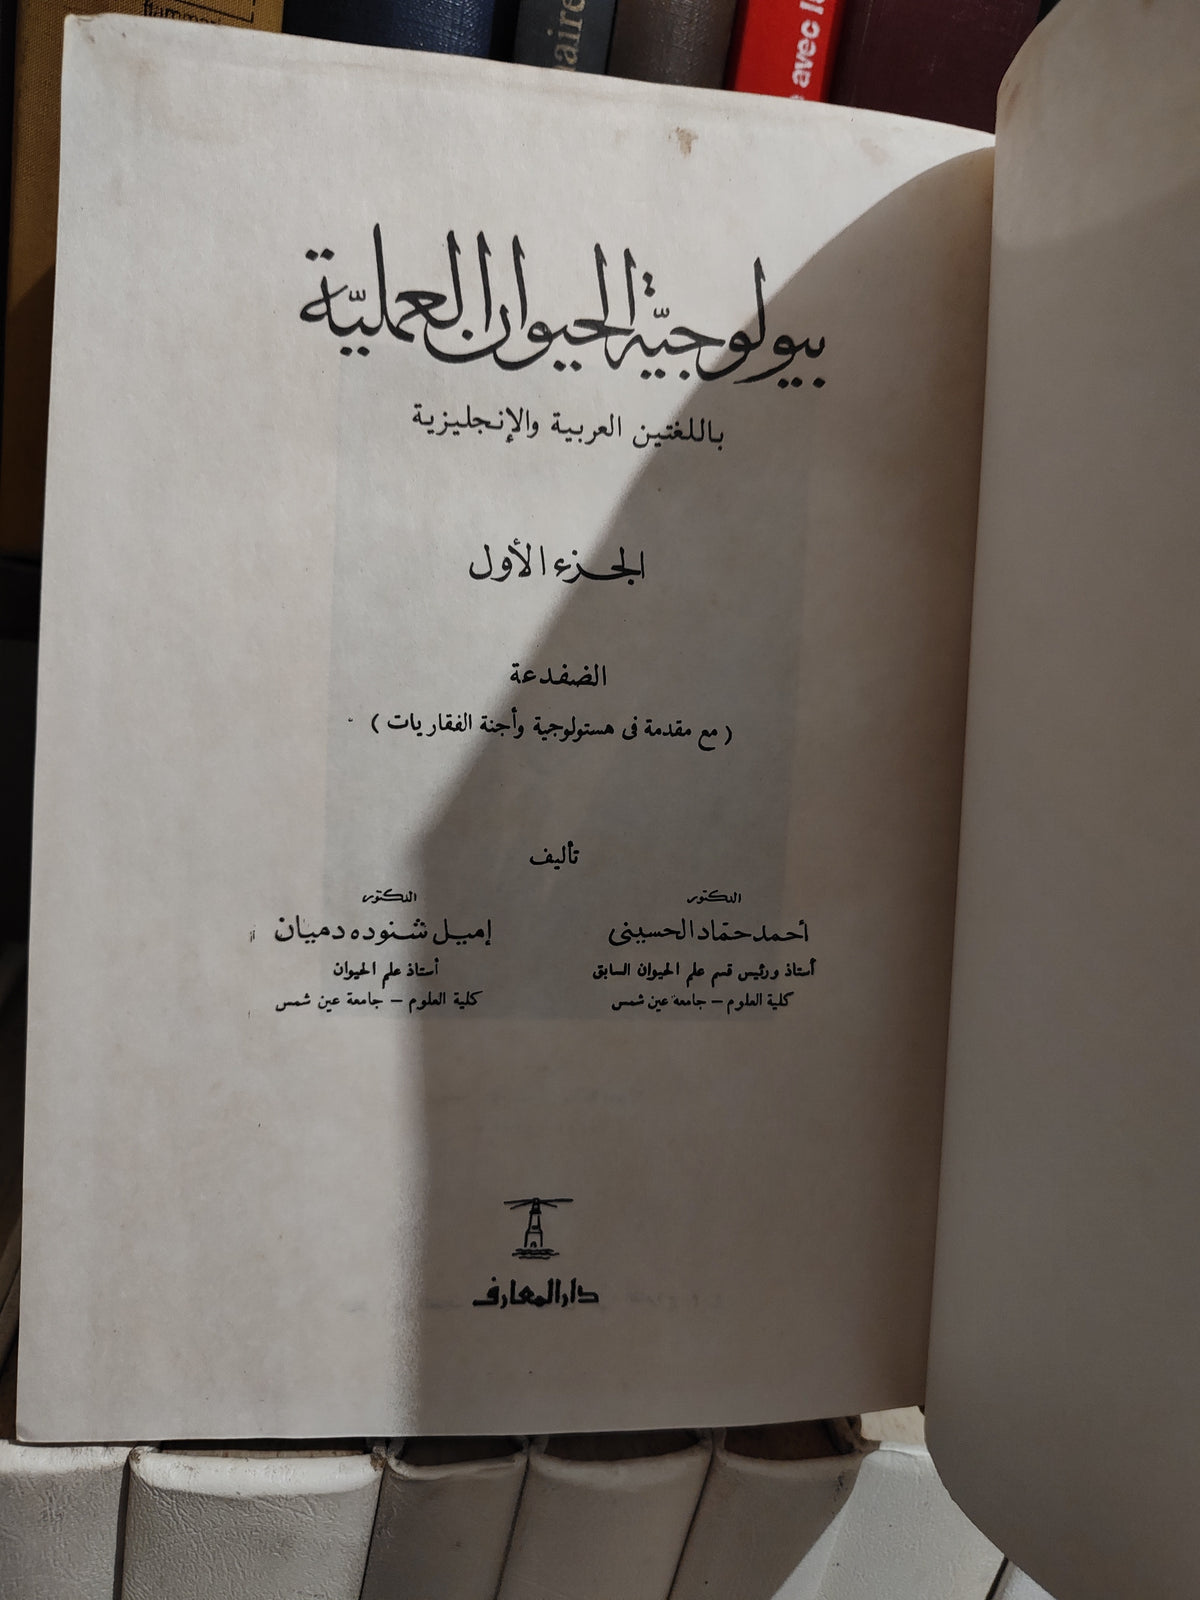 flammari
naire
avec la
بيولوجيّة الحيوان العمليّة
باللغتين العربية والإنجليزية
الجزء الأول
الضفدعة
( مع مقدمة فى هستولوجية وأجنة الفقاريات )
تأليف
الدكتور
أحمد حمّاد الحسينى
أستاذ ورئيس قسم علم الحيوان السابق
كلية العلوم – جامعة عين شمس
الدكتور
إميل شنوده دميان
أستاذ علم الحيوان
كلية العلوم – جامعة عين شمس
دار المعارف